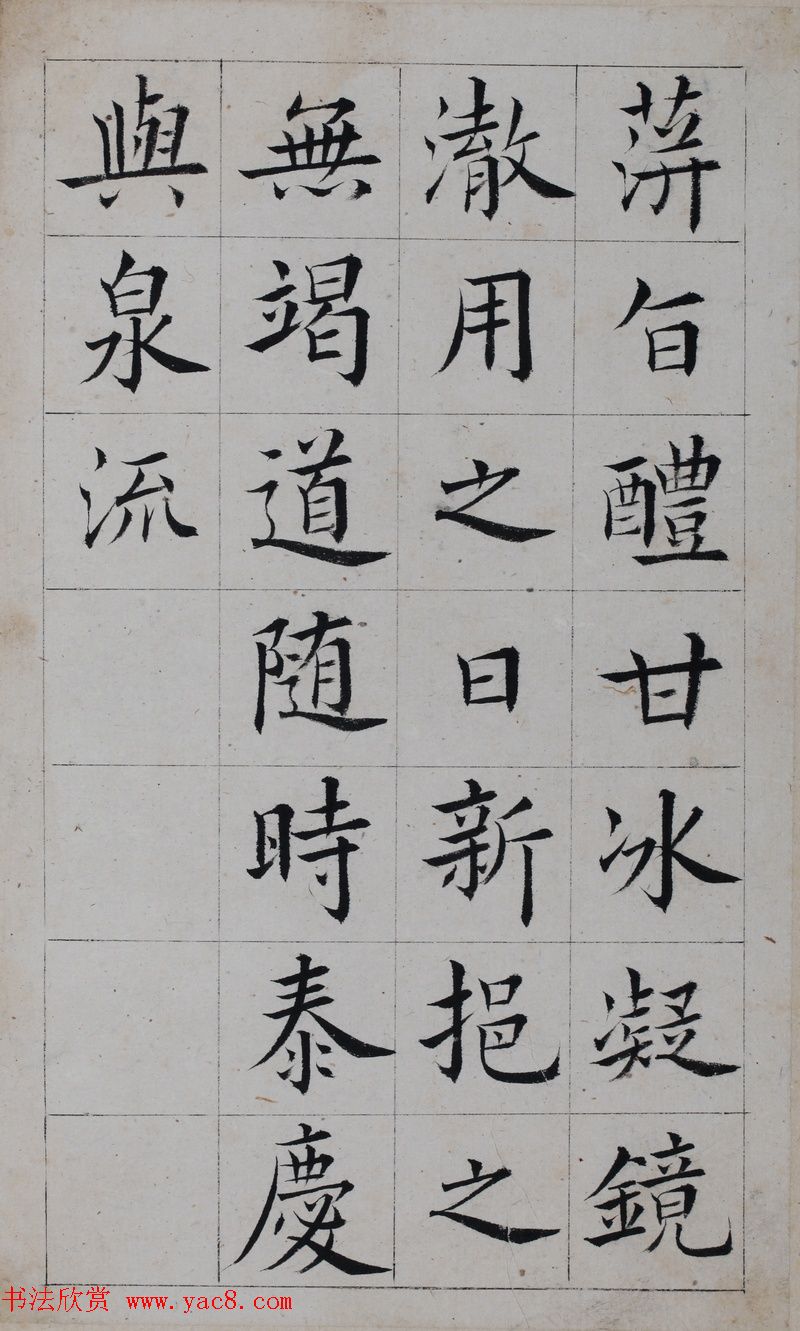 蓱旨醴甘冰凝鏡
澈用之日新挹之
無竭道随時泰慶
與泉流
书法欣赏 www.yac8.com